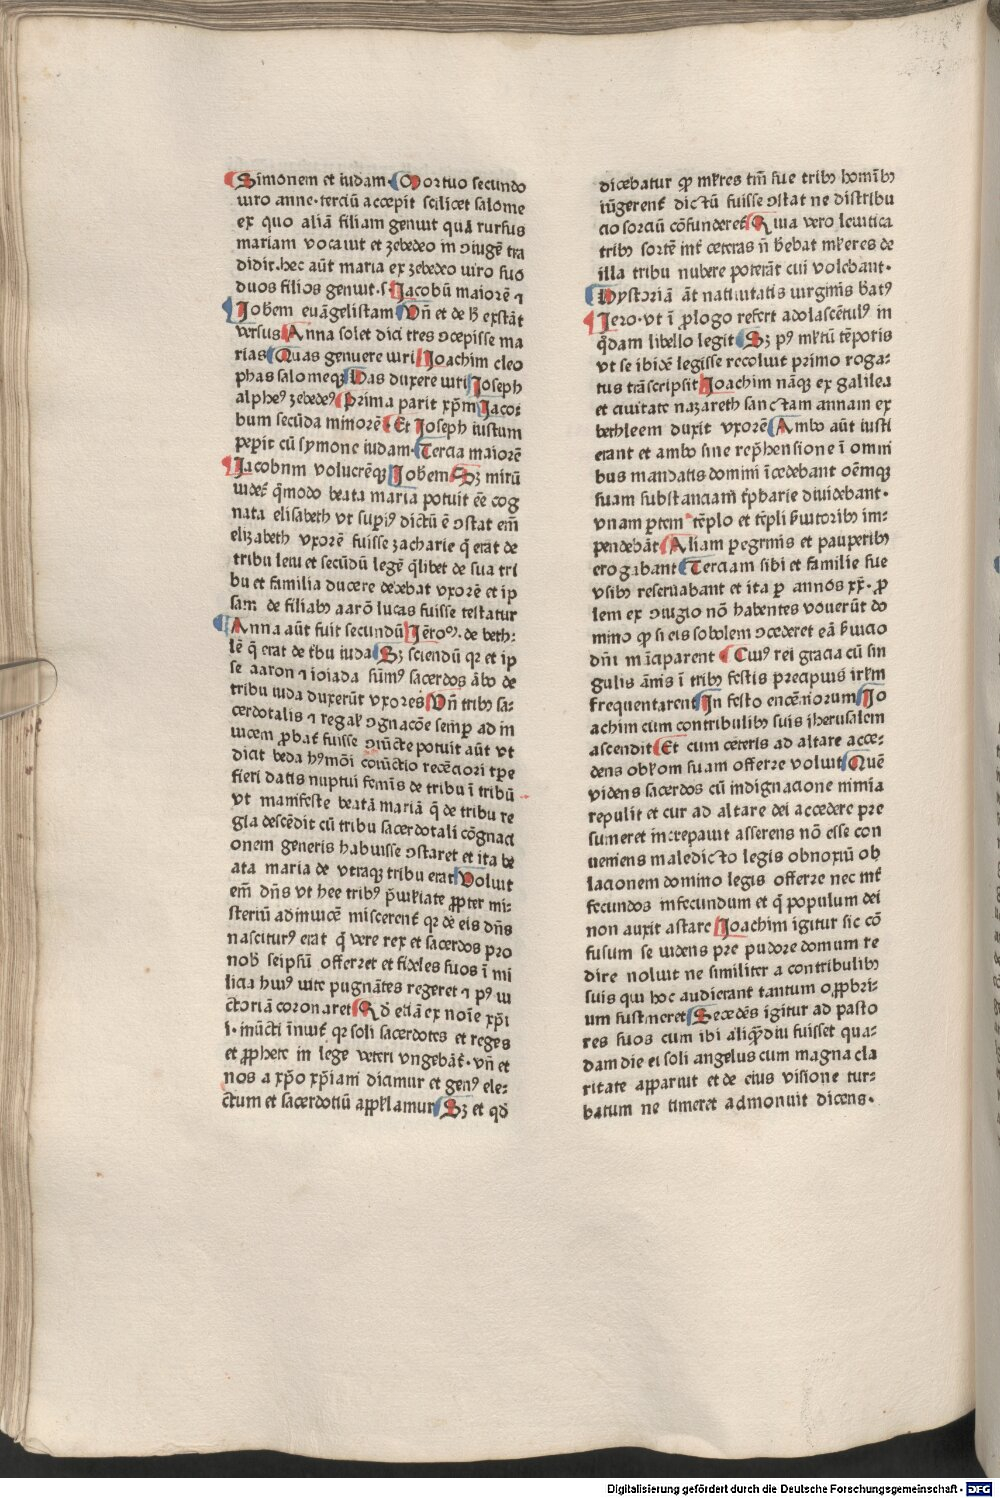 Simonem et iudam. Mortuo secundo
uiro anne. terciū accepit scilicet salome
ex quo aliā filiam genuit quā rursus
mariam vocauit et zebedeo in ꝯiugē tra
didit. hec aūt maria ex zebedeo uiro suo
duos filios genuit. s. Jacobū maiorē ⁊
Joħem euāgelistam Vn̄ et de ħ exstāt
versus Anna solet dici tres ꝯcepisse ma
rias Quas genuere uiri Joachim cleo
phas salomeqꝫ Has duxere uiri Joseph
alpheꝰ zebedeꝰ Prima parit xp̄m Jaco⸗
bum secūda minorē Et Joseph iustum
peꝑit cū symone iudam. Tercia maiorē
Jacobum volucrēqꝫ Joħem Sꝫ mirū
uidet̄ q̄modo beata maria potuit eē cog
nata elisabeth vt supriꝰ dictū ē ꝯstat em̄
elizabeth vxorē fuisse zacharie q̄ erat de
tribu leui et secūdū legē q̄libet de sua tri
bu et familia ducere debebat vxorē et ip
sam de filiabꝫ aarō lucas fuisse testatur
Anna aūt fuit secundū Jēroꝰ. de beth⸗
lē q̄ erat de tbu iuda Sꝫ sciendū qr et ip
se aaron ⁊ ioiada sūmꝰ sacerdos ābo de
tribu iuda duxerūt vxores Vn̄ tribꝫ sa⸗
cerdotalis ⁊ regal ꝯgnacōe semꝑ ad in
uicem ꝓbat̄ fuisse ꝯiūcte potuit aūt vt
dicit beda hꝰmōi coiūctio recēciori tꝑe
fieri datis nuptui femīs de tribu ī tribū
vt manifeste beatā mariā q̄ de tribu re
gia descēdit cū tribu sacerdotali cōgnaci
onem generis habuisse ꝯstaret et ita be
ata maria de vtraqꝫ tribu erat Voluit
em̄ dn̄s vt hee tribꝰ p̄uilegiate ꝓpter mi⸗
steriū adinuicē miscerent̄ qr de eis dn̄s
nasciturꝰ erat q̄ vere rex et sacerdos pro
nob̄ seipsū offerret et fideles suos ī mi
licia huiꝰ uite pugnātes regeret ⁊ pꝰ ui
ctoriā coronaret Qd̄ eciā ex noīe xp̄i
i. inūcti īnuit̄ qr soli sacerdotes et reges
et ꝓphete in lege veteri vngebāt̄. vn̄ et
nos a xp̄o xp̄iani dicimur et genꝰ ele⸗
ctum et sacerdotiū aꝑꝑlamur Sꝫ et qd̄
dicebatur ꝙ mlr̄es tm̄ sue tribꝫ homībꝫ
iūgerent̄ dictū fuisse ꝯstat ne distribu
cio sorciū cōfunderet̄ Quia vero leuitica
tribꝫ sortē int̄ ceteras n̄ ħebat mlr̄es de
illa tribu nubere poterāt cui volebant.
Hystoriā āt natiuitatis uirginis ƀatꝰ
Jero. vt ī ꝓlogo refert adolascētulꝰ in
q̄dam libello legit Sꝫ pꝰ mltū tēporis
vt se ibidē legisse recoluit primo roga⸗
tus trāscripsit Joachim nāqꝫ ex galilea
et ciuitate nazareth sanctam annam ex
bethleem duxit vxorē Ambo aūt iusti
erant et ambo sine rep̄hensione ī omni
bus mandatis domini īcedebant oēmqꝫ
suam substanciam̄ tp̄harie diuidebant.
vnam ꝑtem tēplo et tēpli ƀuitoribꝫ im⸗
pendebāt Aliam peregrinis et pauperibꝫ
erogabant Terciam sibi et familie sue
vsibꝫ reseruabant et ita ꝑ annos xx̄. ꝓ
lem ex ꝯiugio nō habentes vouerūt do
mino ꝙ si eis sobolem ꝯcederet eā ƀuicio
dn̄i mīciparent Cuiꝰ rei gracia cū sin
gulis ānis ī tribꝫ festis precipuis irlm
frequentarent In festo encēniorum Jo
achim cum contribulibꝫ suis iherusalem
ascendit Et cum ceteris ad altare acce⸗
dens oblōem suam offerre voluit Quē
videns sacerdos cū indignacione nimia
repulit et cur ad altare dei accedere pre
sumeret increpauit asserens nō esse con
ueniens maledicto legis obnoxiū ob
lacionem domino legis offerre nec int̄
fecundos infecundum et q̄ populum dei
non auxit astare Joachim igitur sic cō
fusum se uidens pre pudore domum re
dire noluit ne similiter a contribulibꝫ
suis qui hoc audierant tantum oꝓbri⸗
um sustineret Secedēs igitur ad pasto
res suos cum ibi aliqꝫdiu fuisset qua⸗
dam die ei soli angelus cum magna cla
ritate apparuit et de eius visione tur⸗
batum ne timeret admonuit dicens.
Digitalisierung gefördert durch die Deutsche Forschungsgemeinschaft - DFG